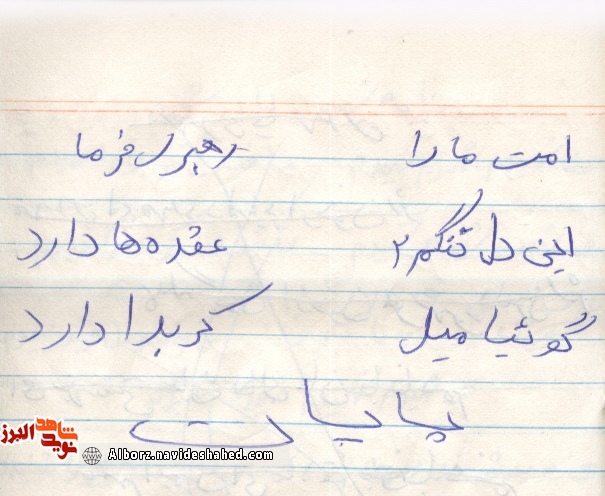 امت ما را رهبری فرما
این دل تنگم ۲ عقده ها دارد
گوئیا میل کربلا دارد
پایان
نوید شاهد البرز
Alborz.navideshahed.com